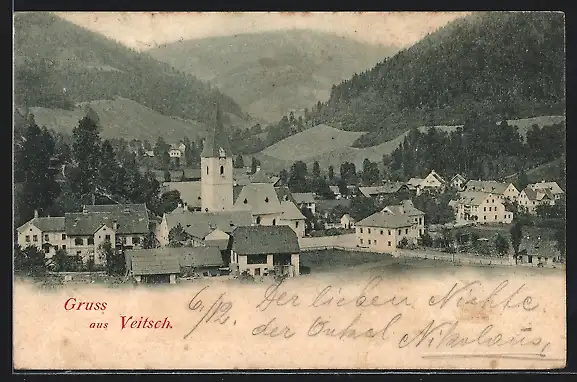 Gruss
aus Veitsch.
6/12. Der lieben Nichte
der Onkel Nikolaus,